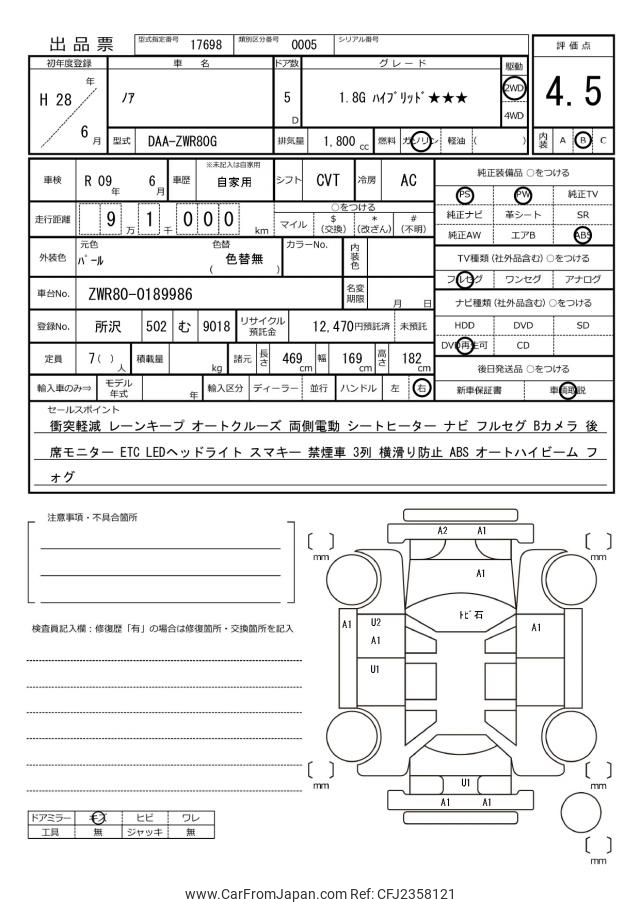 出品票
型式指定番号 17698 類別区分番号 0005 シリアル番号
評価点
4.5
内装 A B C
初年度登録 車名 ドア数 グレード 駆動
H 28 年 6 月
ノア 5 D 1.8G ハイブリッド★★★ 2WD 4WD
型式 DAA-ZWR80G 排気量 1,800 cc 燃料 ガソリン 軽油 ( )
車検 R 09 年 6 月 車歴 ※未記入は自家用 自家用 シフト CVT 冷房 AC
走行距離 9 万 1 千 0 0 0 km
○をつける
マイル $(交換) *(改ざん) #(不明)
外装色 元色 パール 色替 ( 色替無 ) カラーNo. 内装色
車台No. ZWR80-0189986 名変期限 月 日
登録No. 所沢 502 む 9018 リサイクル預託金 12,470円預託済 未預託
定員 7( ) 人 積載量 kg 諸元 長さ 469cm 幅 169cm 高さ 182cm
輸入車のみ⇒ モデル年式 年 輸入区分 ディーラー 並行 ハンドル 左 右
純正装備品 ○をつける
PS PW 純正TV
純正ナビ 革シート SR
純正AW エアB ABS
TV種類(社外品含む) ○をつける
フルセグ ワンセグ アナログ
ナビ種類(社外品含む) ○をつける
HDD DVD SD
DVD再生可 CD
後日発送品 ○をつける
新車保証書 車輌取説
セールスポイント
衝突軽減 レーンキープ オートクルーズ 両側電動 シートヒーター ナビ フルセグ Bカメラ 後
席モニター ETC LEDヘッドライト スマキー 禁煙車 3列 横滑り防止 ABS オートハイビーム フ
ォグ
注意事項・不具合箇所
検査員記入欄：修復歴「有」の場合は修復箇所・交換箇所を記入
ドアミラー キズ ヒビ ワレ
工具 無 ジャッキ 無
A2 A1
mm mm
A1
トビ石
A1 U2 A1
A1
U1
mm mm
U1
A1 A1
mm
www.CarFromJapan.com Ref: CFJ2358121